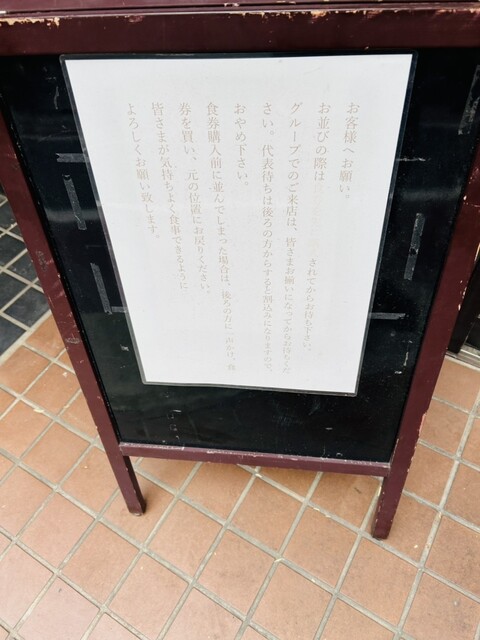 お客様へお願い。
お並びの際は されてからお待ち下さい。
グループでのご来店は、皆さまお揃いになってからお待ちくだ
さい。代表待ちは後ろの方からすると割込みになりますので、
おやめ下さい。
食券購入前に並んでしまった場合は、後ろの方に一声かけ、食
券を買い、元の位置にお戻りください。
皆さまが気持ちよく食事できるように
よろしくお願い致します。